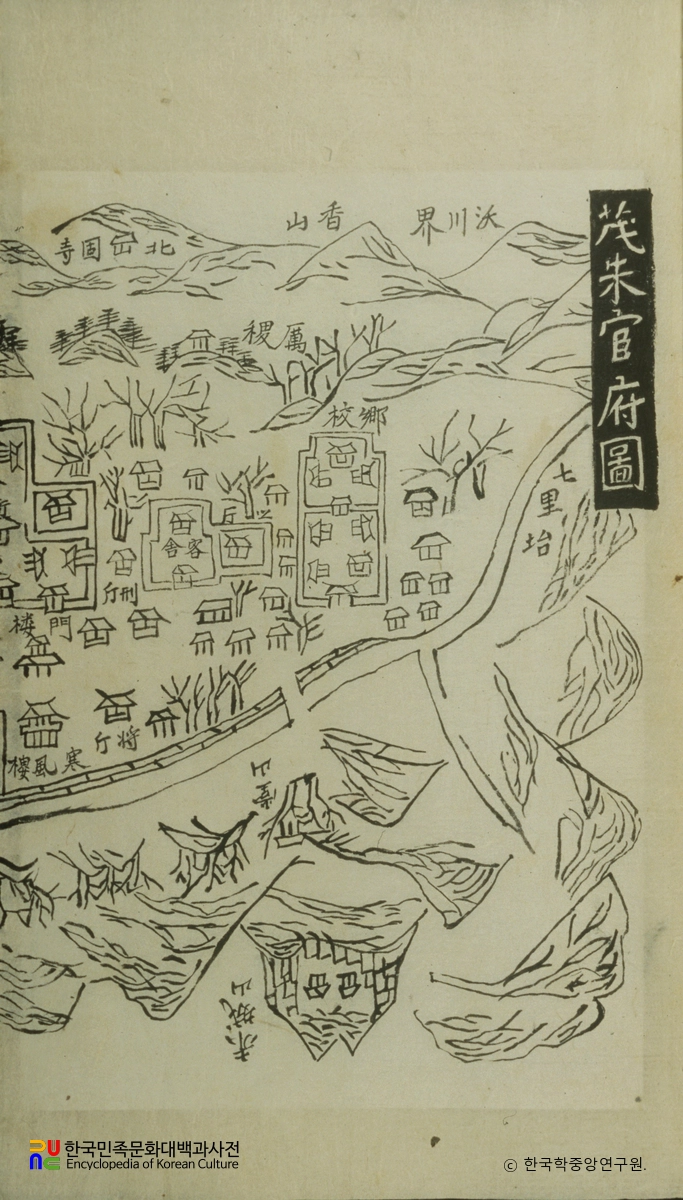 茂朱官府圖
沃川界
香山
北固寺
厲
稷
鄕校
七里
客舍
刑厅
門楼
将厅
寒風樓
堂山
赤城山
한국민족문화대백과사전
Encyclopedia of Korean Culture
© 한국학중앙연구원.